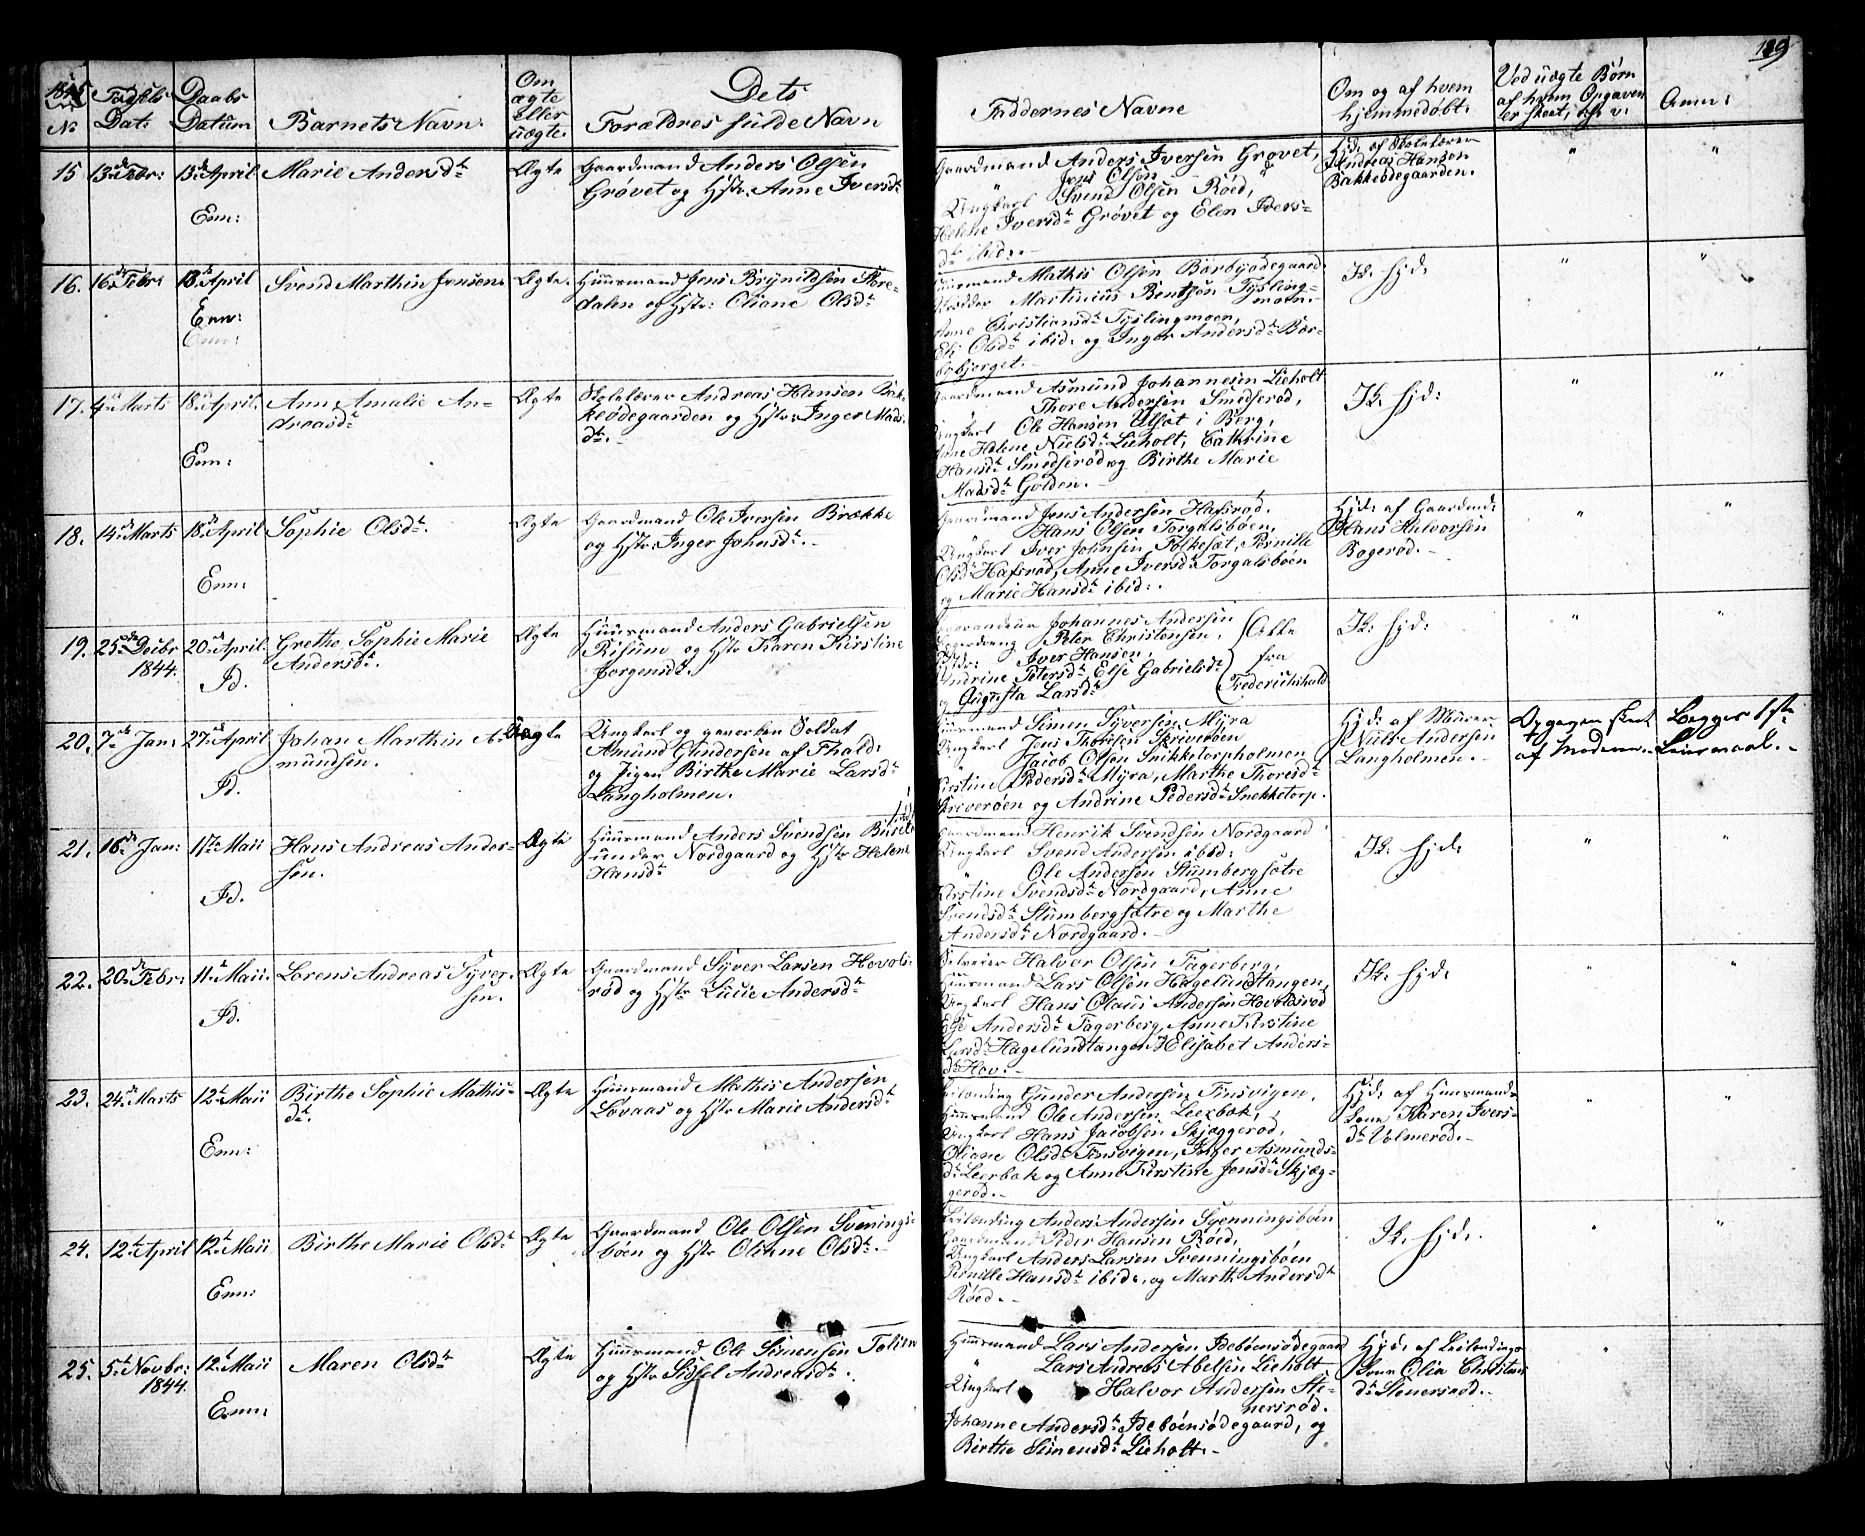 189
1845
No
Fødsels Dat:
Daabs Datum
Barnets Navn.
Om ægte eller uægte.
Dets
Forældres fulde Navn
Faddernes Navne
Om og af hvem hjemmedøbt.
Ved uægte Børn af hvem Opgaven er skeet, osv.
Anm:
15 13de Febr: 13de April Marie Andersdt Ægte Gaardmand Anders Olsen
Enn: Grøvet og Hstr. Anne Iversdt
Gaardmand Anders Iversen Grøvet,
" Jens Olsen
Ungkarl Svend Olsen Röed,
Helene Iversdt Grøvet og Elen Ivers-
dt ibid:-
Hjd: af Skolelærer
Andreas Hansen
Bakkeødegaarden.
" "
16. 16de Febr: 13de April Svend Marthin Jensen. Ægte. Huusmand Jens Brynildsen Store-
Enn: dahn og Hstr: Oliane Olsdt
Enn:
Huusmand Mathis Olsen Børbyødegaard
Martinius Bentsen Tysling-
moen.
Anne Christiansdt Tyslingmoen,
Eli Olsdt ibid: og Inger Andersdt Bør-
bybjerget.
Ik: hjd:
" "
17. 4de Marts 18de April. Ann Amalie An- Ægte Skolelærer Andreas Hansen Bak-
dreasdt keødegaarden og Hstr: Inger Mads-
Enn: dt.-
Gaardmand Asmund Johannesen Lieholt
Thore Andersen Smedserød,
Ungkarl Ole Hansen Ulsæt i Berg,
Anne Helene Nielsdt Lieholt, Cathrine
Hansdt Smedserød og Birthe Marie
Madsdt Golden.-
Ik: hjd:
" "
18. 14de Marts 18de April Sophie Olsdt. Ægte Gaardmand Ole Iversen Brække
Enn: og Hstr: Inger Johnsdt.-
Gaardmand Jens Andersen Hafsrød.
Hans Olsen Torgalsbøen,
Ungkarl Iver Johnsen Folkesæt, Pernille
Olsdt Hafsrød, Anne Iversdt Torgalsbøen
og Marie Hansdt ibid:.
Hjd: af Gaardmd:
Hans Halvorsen
Bøgerød.-
" "
19. 25de Decbr 20de April Grethe Sophie Marie Ægte Huusmand Anders Gabrielsen
1844. Id. Andersdt. Risum og Hstr Karen Kirstine
Jørgensdt.
Johannes Andersen
Peter Christensen,
Iver Hansen,
Andrine Petersdt Else Gabrielsdt
og Augusta Larsdt
fra
Frederikshald
Ik: hjd:
" "
20. 7de Jan: 27de April Johan Marthin A- Uægte Ungkarl og geworben Soldat
Id. mundsen. Amund Gundersen af Fhald:
og Pigen Birthe Marie Larsdt
Langholmen.
Huusmand Simen Syversen Myra
Ungkarl Jens Thoresen Skriverøen
Jacob Olsen Snikketorpholmen
Kirstine Pedersdt Myra, Marthe Thoresdt
Skriverøen og Andrine Pedersdt Snekketorp.
Hjd: af Murer
Niels Andersen
Langholmen.-
Opgaven skeet
af Moderen.-
Begges 1ste
Leiermaal.-
21. 16de Jan: 11te Maii Hans Andreas Ander- Ægte Huusmand Anders Svendsen
Id. sen. under Nordgaard og Hstr Helene
Hansdt
Gaardmand Henrik Svendsen Nordgaard
Ungkarl Svend Andersen ibid:
" Ole Andersen Stumbergsætre
Kirstine Svendsdt Nordgaard, Anne
Svendsdt Stumbergsætre og Marthe
Andersdt Nordgaard.-
Ik: hjd:
" "
22. 20de Febr: 11te Maii. Lorens Andreas Syver- Ægte Gaardmand Syver Larsen Hovols-
Id. sen. rød og Hstr Lucie Andersdt
Selveier Halvor Olsen Fagerberg,
Huusmand Lars Olsen Hagelundtangen,
Ungkarl Hans Olaus Andersen Hovolsrød
Else Andersdt Fagerberg, Anne Kirstine
Larsdt Hagelundtangen Elisabet Anders-
dt Hov:-
Ik: hjd:
" "
23. 24de Marts 12te Maii Birthe Sophie Mathis- Ægte Huusmand Mathis Andersen
Enn: dt. Løvaas og Hstr Marie Andersdt
Leilænding Gunder Andersen Finsvigen,
Huusmand Ole Andersen Leerbak,
Ungkarl Hans Jacobsen Skjæggerød,
Oliane Olsdt Finsvigen, Inger Asmunds-
dt Leerbak og Anne Kirstine Jensdt Skjæg-
gerød.-
Hjd: af Huusmands
Kone Karen Ivers-
dt Volmerød.-
" "
24. 12te April 12te Maii Birthe Marie Olsdt Ægte Gaardmand Ole Olsen Svenings-
Enn: bøen og Hstr Oliane Olsdt.-
Leilænding Anders Andersen Svenningsbøen
Gaardmand Peder Hansen Röed,
Ungkarl Anders Larsen Svenningsbøen
Pernille Hansdt ibid:, og Marth. Andersdt
Röed.-
Ik. hjd.
" "
25. 5te Novbr: 12te Maii Maren Olsdt Ægte Huusmand Ole Simensen
1844. Enn: og Hstr Sissel Andreasdt.
Huusmand Lars Andersen Idebøensødegaard
" Lars Andreas Abelsen Lieholt
Ungkarl Halvor Andersen Ste-
nersrød.
Johanne Andersdt Idebøensødegaard, og
Birthe Simensdt Lieholt.-
Hjd: af Leilændings
Kone Olia Christians
dt Stenersrød.-
"